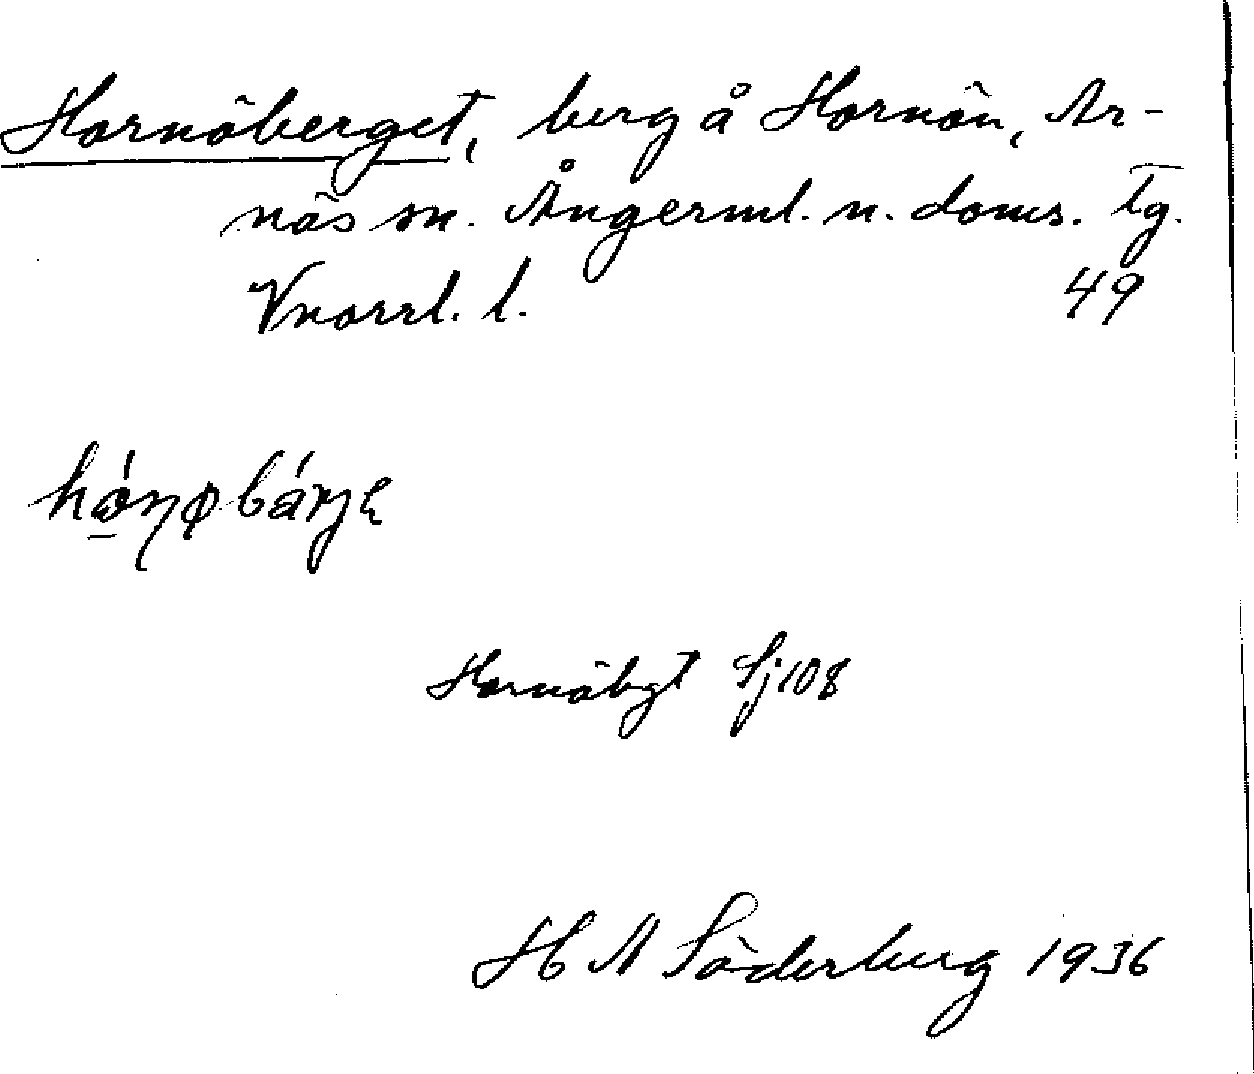 Hornöberget, berg å Hornön, Ar-
näs sn. Ångerml. n. doms. tg.
Vnorrl. l. 49
Hornöbgt Sj 108
H A Söderberg 1936